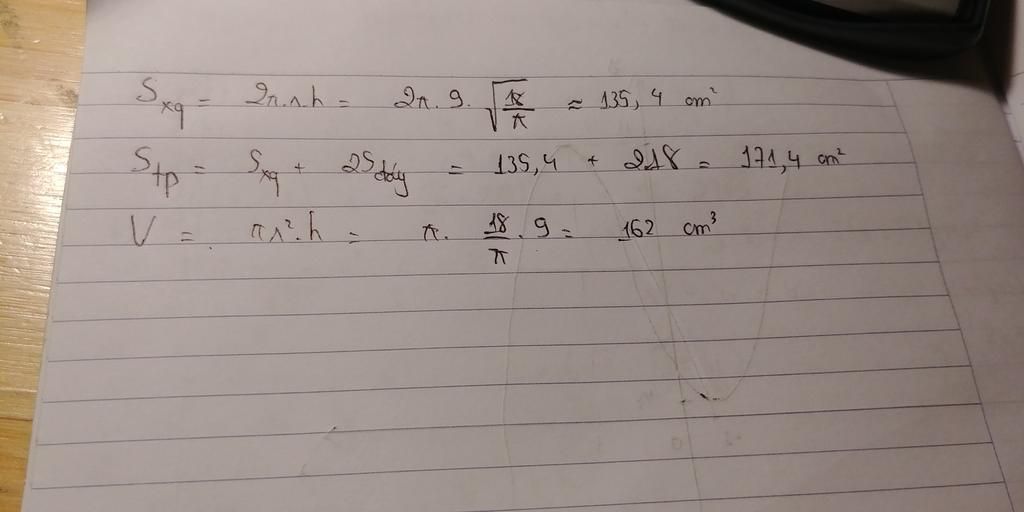 Sxq = 2π.r.h = 2π.9.√(18/π) ≈ 135,4 cm²
Stp = Sxq + 2Sđáy = 135,4 + 2.18 = 171,4 cm²
V = πr².h = π.18/π.9 = 162 cm³